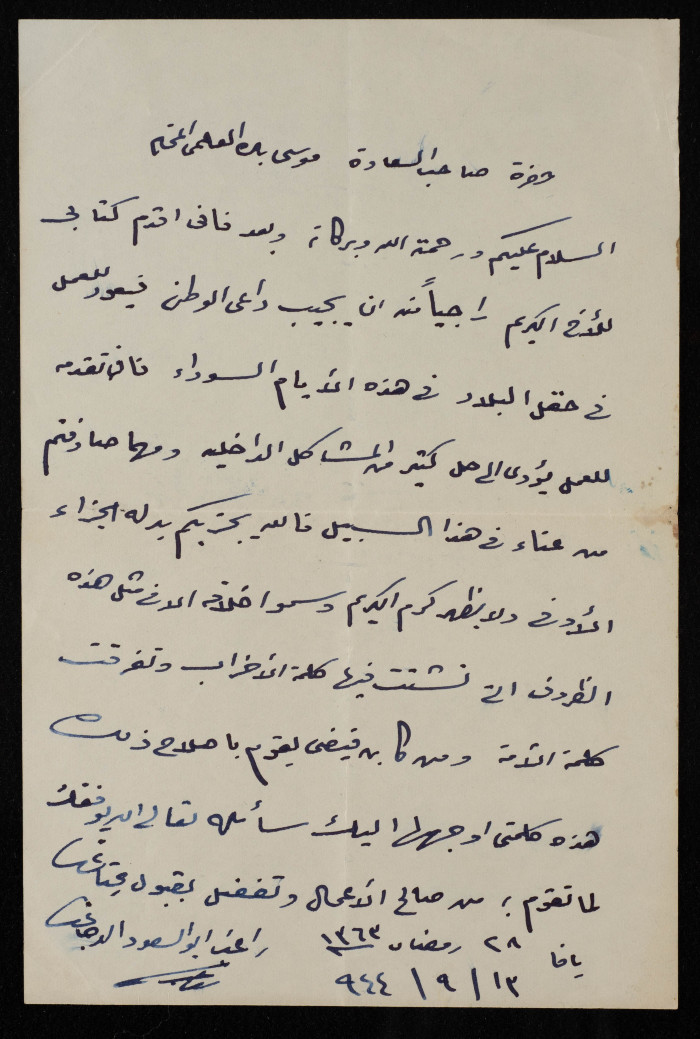 حضرة صاحب السعادة موسى بك العلمي المحترم
السلام عليكم ورحمة الله وبركاته وبعد فاني اقدم كتابي
للأخ الكريم راجياً منه ان يجيب داعي الوطن فيعود للعمل
في حقل البلاد في هذه الأيام السوداء فان تقدمه
للعمل يؤدي الى حل كثير من المشاكل الداخلية ومهما صادفتم
من عناء في هذا السبيل فالله يجزيكم بدله الجزاء
الأوفى ولا يظهر كرم الكريم وسمو اخلاقه الا في مثل هذه
الظروف التي تشتت فيها كلمة الأحزاب وتفرقت
كلمة الأمة ومن كابن فيضي يقوم باصلاح ذلك
هذه كلمتي اوجهها اليك سائله تعالى ان يوفقك
لما تقوم به من صالح الأعمال وتفضل بقبول
يافا ٢٨ رمضان ١٣٦٣ راغب ابو السعود الدجاني
١٣ / ٩ / ٩٤٤